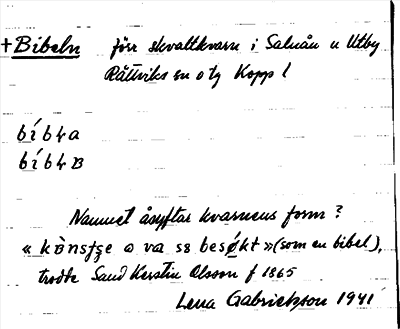 + Bibeln förr skvaltkvarn i Saluån u Utby
Rättviks sn o tg Kopp l
Namnet åsyftar kvarnens form?
(som en bibel),
trodde Sand Kerstin Olsson f 1865
Lena Gabrielsson 1941